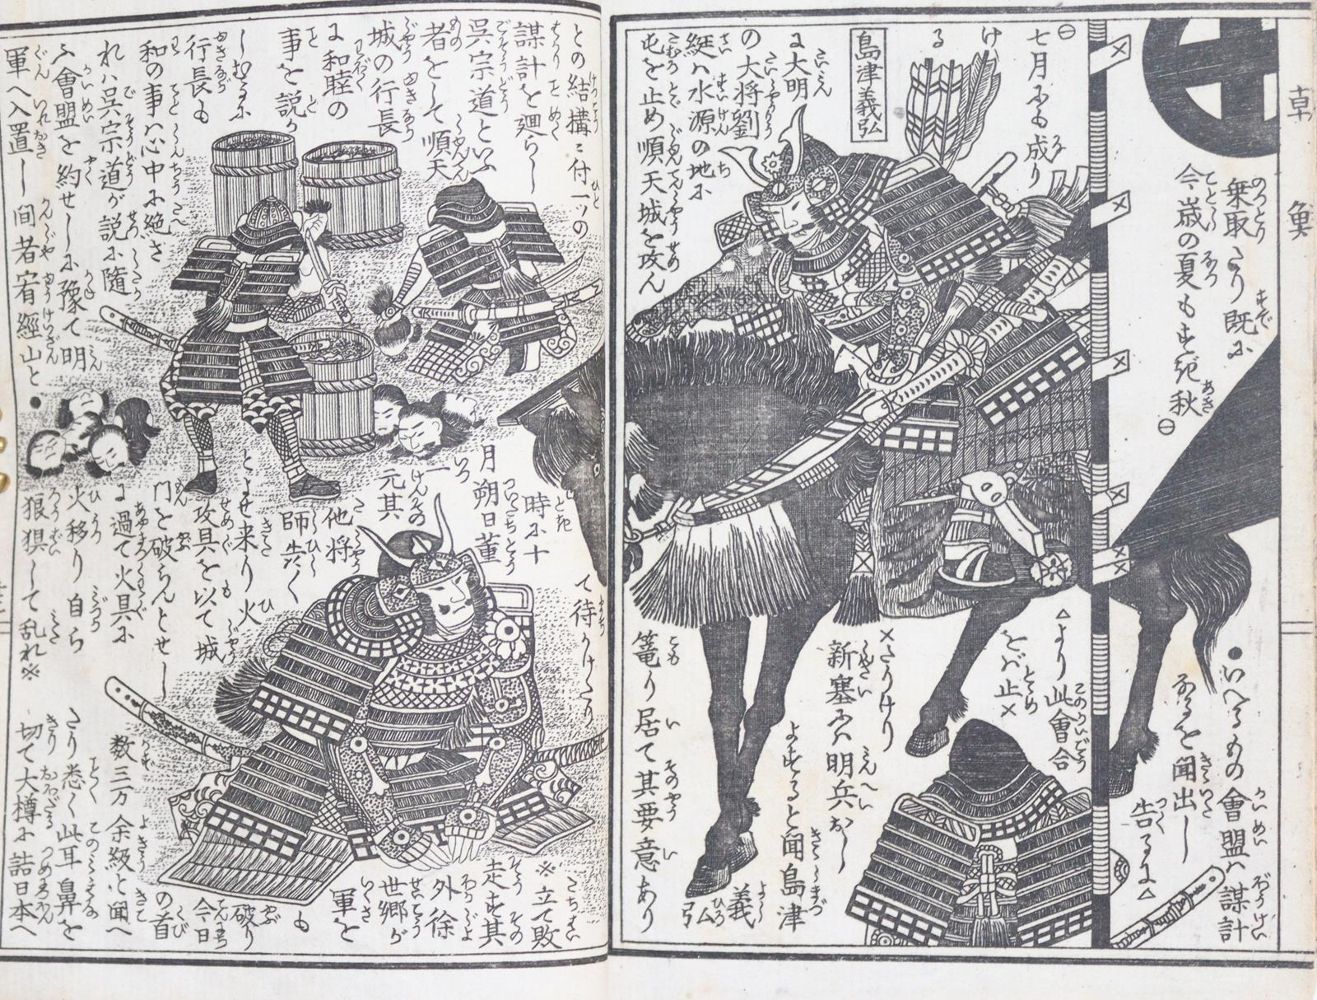 乗取さり既に
今歳の夏もすぎ秋㊀
㊀七月にも成り
ける
島津義弘
に大明
の大将劉
綎ハ水源の地に
屯を止め順天城を攻ん
との結構に付一ツの
謀計を廻らし
呉宗道といふ
者をして順天
城の行長
に和睦の
事を説
しむるに
行長も
和の事ハ心中に絶さ
れハ呉宗道が説に随
ふ會盟を約せしに豫て明
軍へ入置し間者宥經山と●
●いへるもの會盟ハ謀計
なるを聞出し
告るに△
△より此會合
をバ止×
×さりけり
新塞にハ明兵おし
よすると聞島津
義弘
篭り居て其要意あり
て待かけたり
時に十
月朔日董
一元其
他将
師悉く
とよせ来り火
攻具を以て城
門を破らんとせし
に過て火具に
火移り自ら
狼狽して乱れ※
※立て敗
走す其
外徐
世郷が
軍を
も
今日
破り
の首
数三万余級と聞へ
さり悉く此耳鼻を
切て大樽に詰日本へ